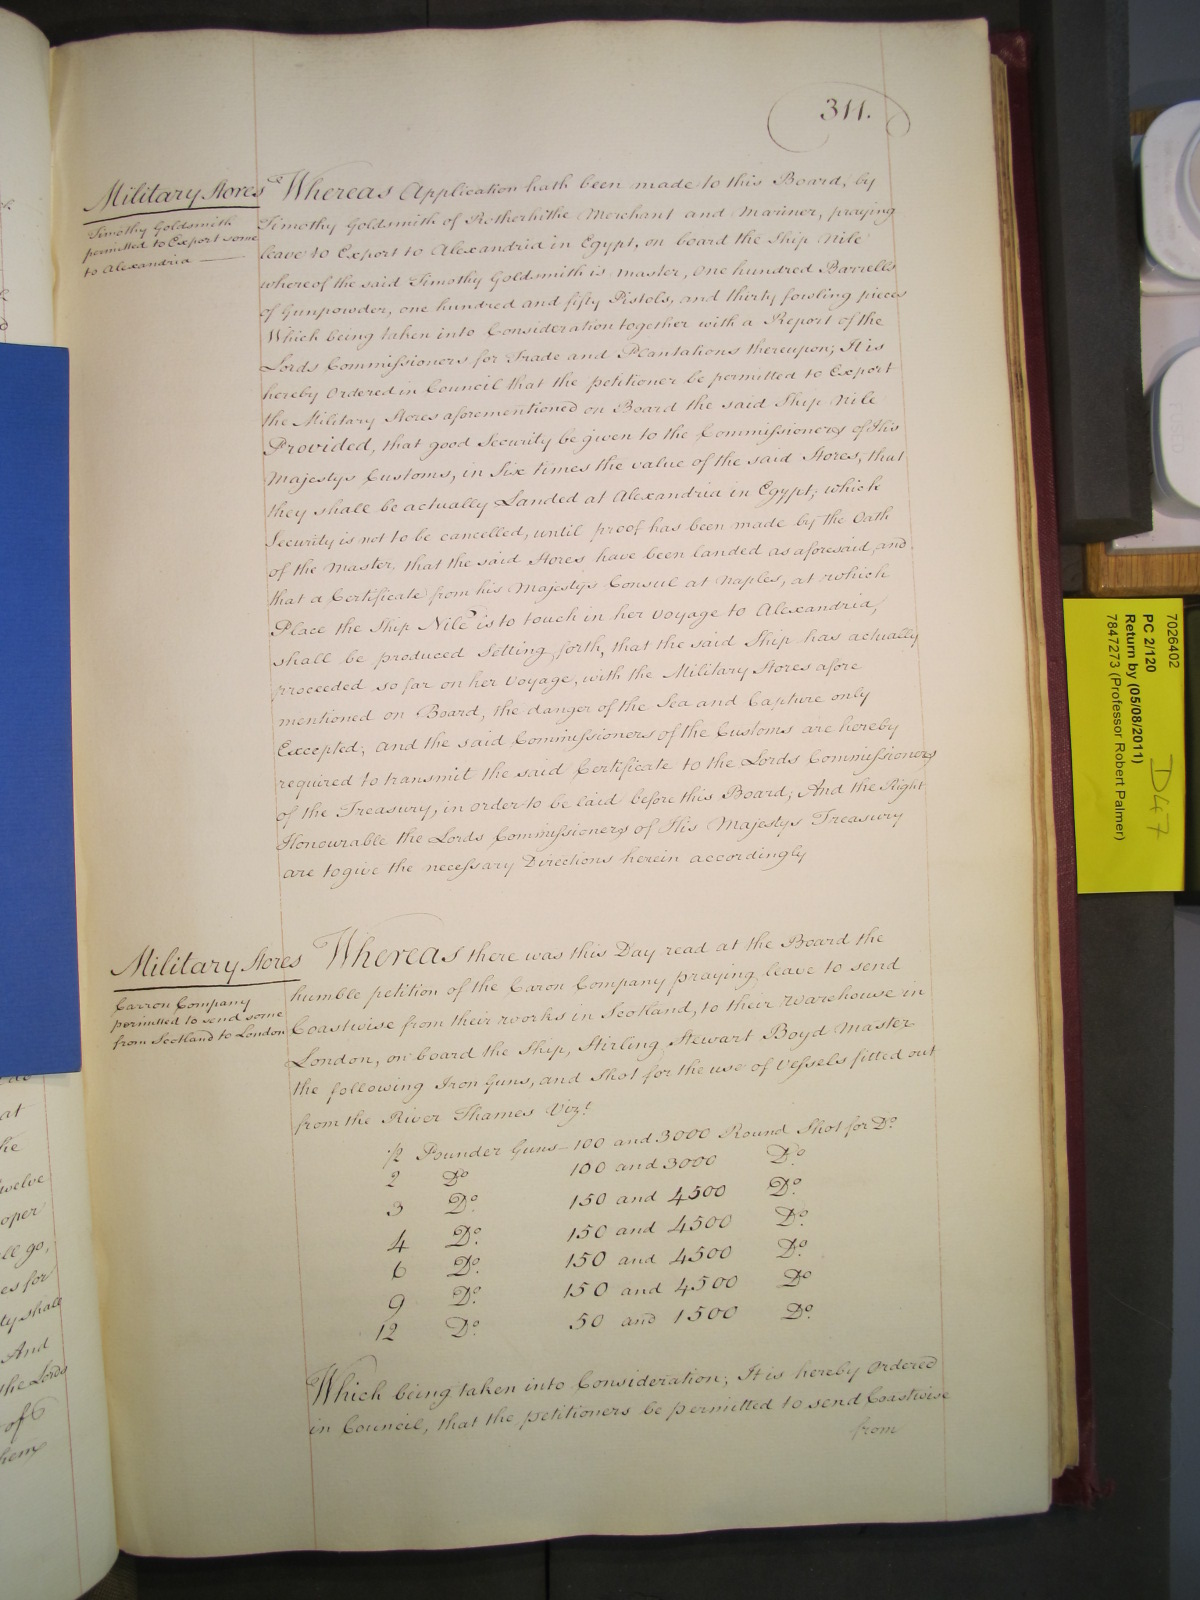 311.
Military Stores
Timothy Goldsmith
permitted to Export some
to Alexandria
Whereas Application hath been made to this Board, by
Timothy Goldsmith of Rotherhithe Merchant and Mariner, praying
leave to Export to Alexandria in Egypt, on board the Ship Nile
whereof the said Timothy Goldsmith is Master, One hundred Barrells
of Gunpowder, one hundred and fifty Pistols, and thirty fowling pieces
Which being taken into Consideration together with a Report of the
Lords Commissioners for Trade and Plantations thereupon; It is
hereby Ordered in Council that the petitioner be permitted to Export
the Military Stores aforementioned on Board the said Ship Nile
Provided, that good Security be given to the Commissioners of His
Majestys Customs, in Six times the value of the said Stores, that
they shall be actually Landed at Alexandria in Egypt; which
Security is not to be cancelled, until proof has been made by the Oath
of the Master, that the said Stores have been landed as aforesaid, and
that a Certificate from his Majestys Consul at Naples, at which
Place the Ship Nile is to touch in her Voyage to Alexandria,
shall be produced Setting forth, that the said Ship has actually
proceeded so far on her Voyage, with the Military Stores afore
mentioned on Board, the danger of the Sea and Capture only
Excepted; and the said Commissioners of the Customs are hereby
required to transmit the said Certificate to the Lords Commissioners
of the Treasury, in order to be laid before this Board; And the Right
Honourable the Lords Commissioners of His Majestys Treasury
are to give the necessary Directions herein accordingly
Military Stores
Carron Company
permitted to send some
from Scotland to London
Whereas there was this Day read at the Board the
humble petition of the Caron Company praying leave to send
Coastwise from their works in Scotland, to their Warehouse in
London, on board the Ship, Stirling Stewart Boyd Master
the following Iron Guns, and Shot for the use of Vessels fitted out
from the River Thames Vizt
1/2 Pounder Guns - 100 and 3000 Round Shot for Do.
2 Do 100 and 3000 Do.
3 Do. 150 and 4500 Do.
4 Do. 150 and 4500 Do.
6 Do. 150 and 4500 Do.
9 Do. 150 and 4500 Do
12 Do. 50 and 1500 Do.
Which being taken into Consideration; It is hereby Ordered
in Council, that the petitioners be permitted to send Coastwise
from
at
he
welve
oper
ll go,
es for
ty shall
And
the Lords
of 6
7026402
PC 2/120
Return by (05/08/2011)
7847273 (Professor Robert Palmer)
D47